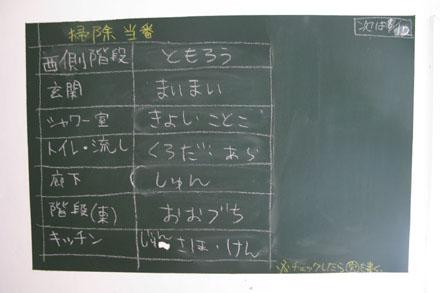 掃除当番
西側階段 ともろう
玄関 まいまい
シャワー室 きよい ことこ
トイレ・流し くろだ・あら
廊下 しゅん
階段(東) おおづち
キッチン じゅん さほ・けん
次は
※チェックしたら